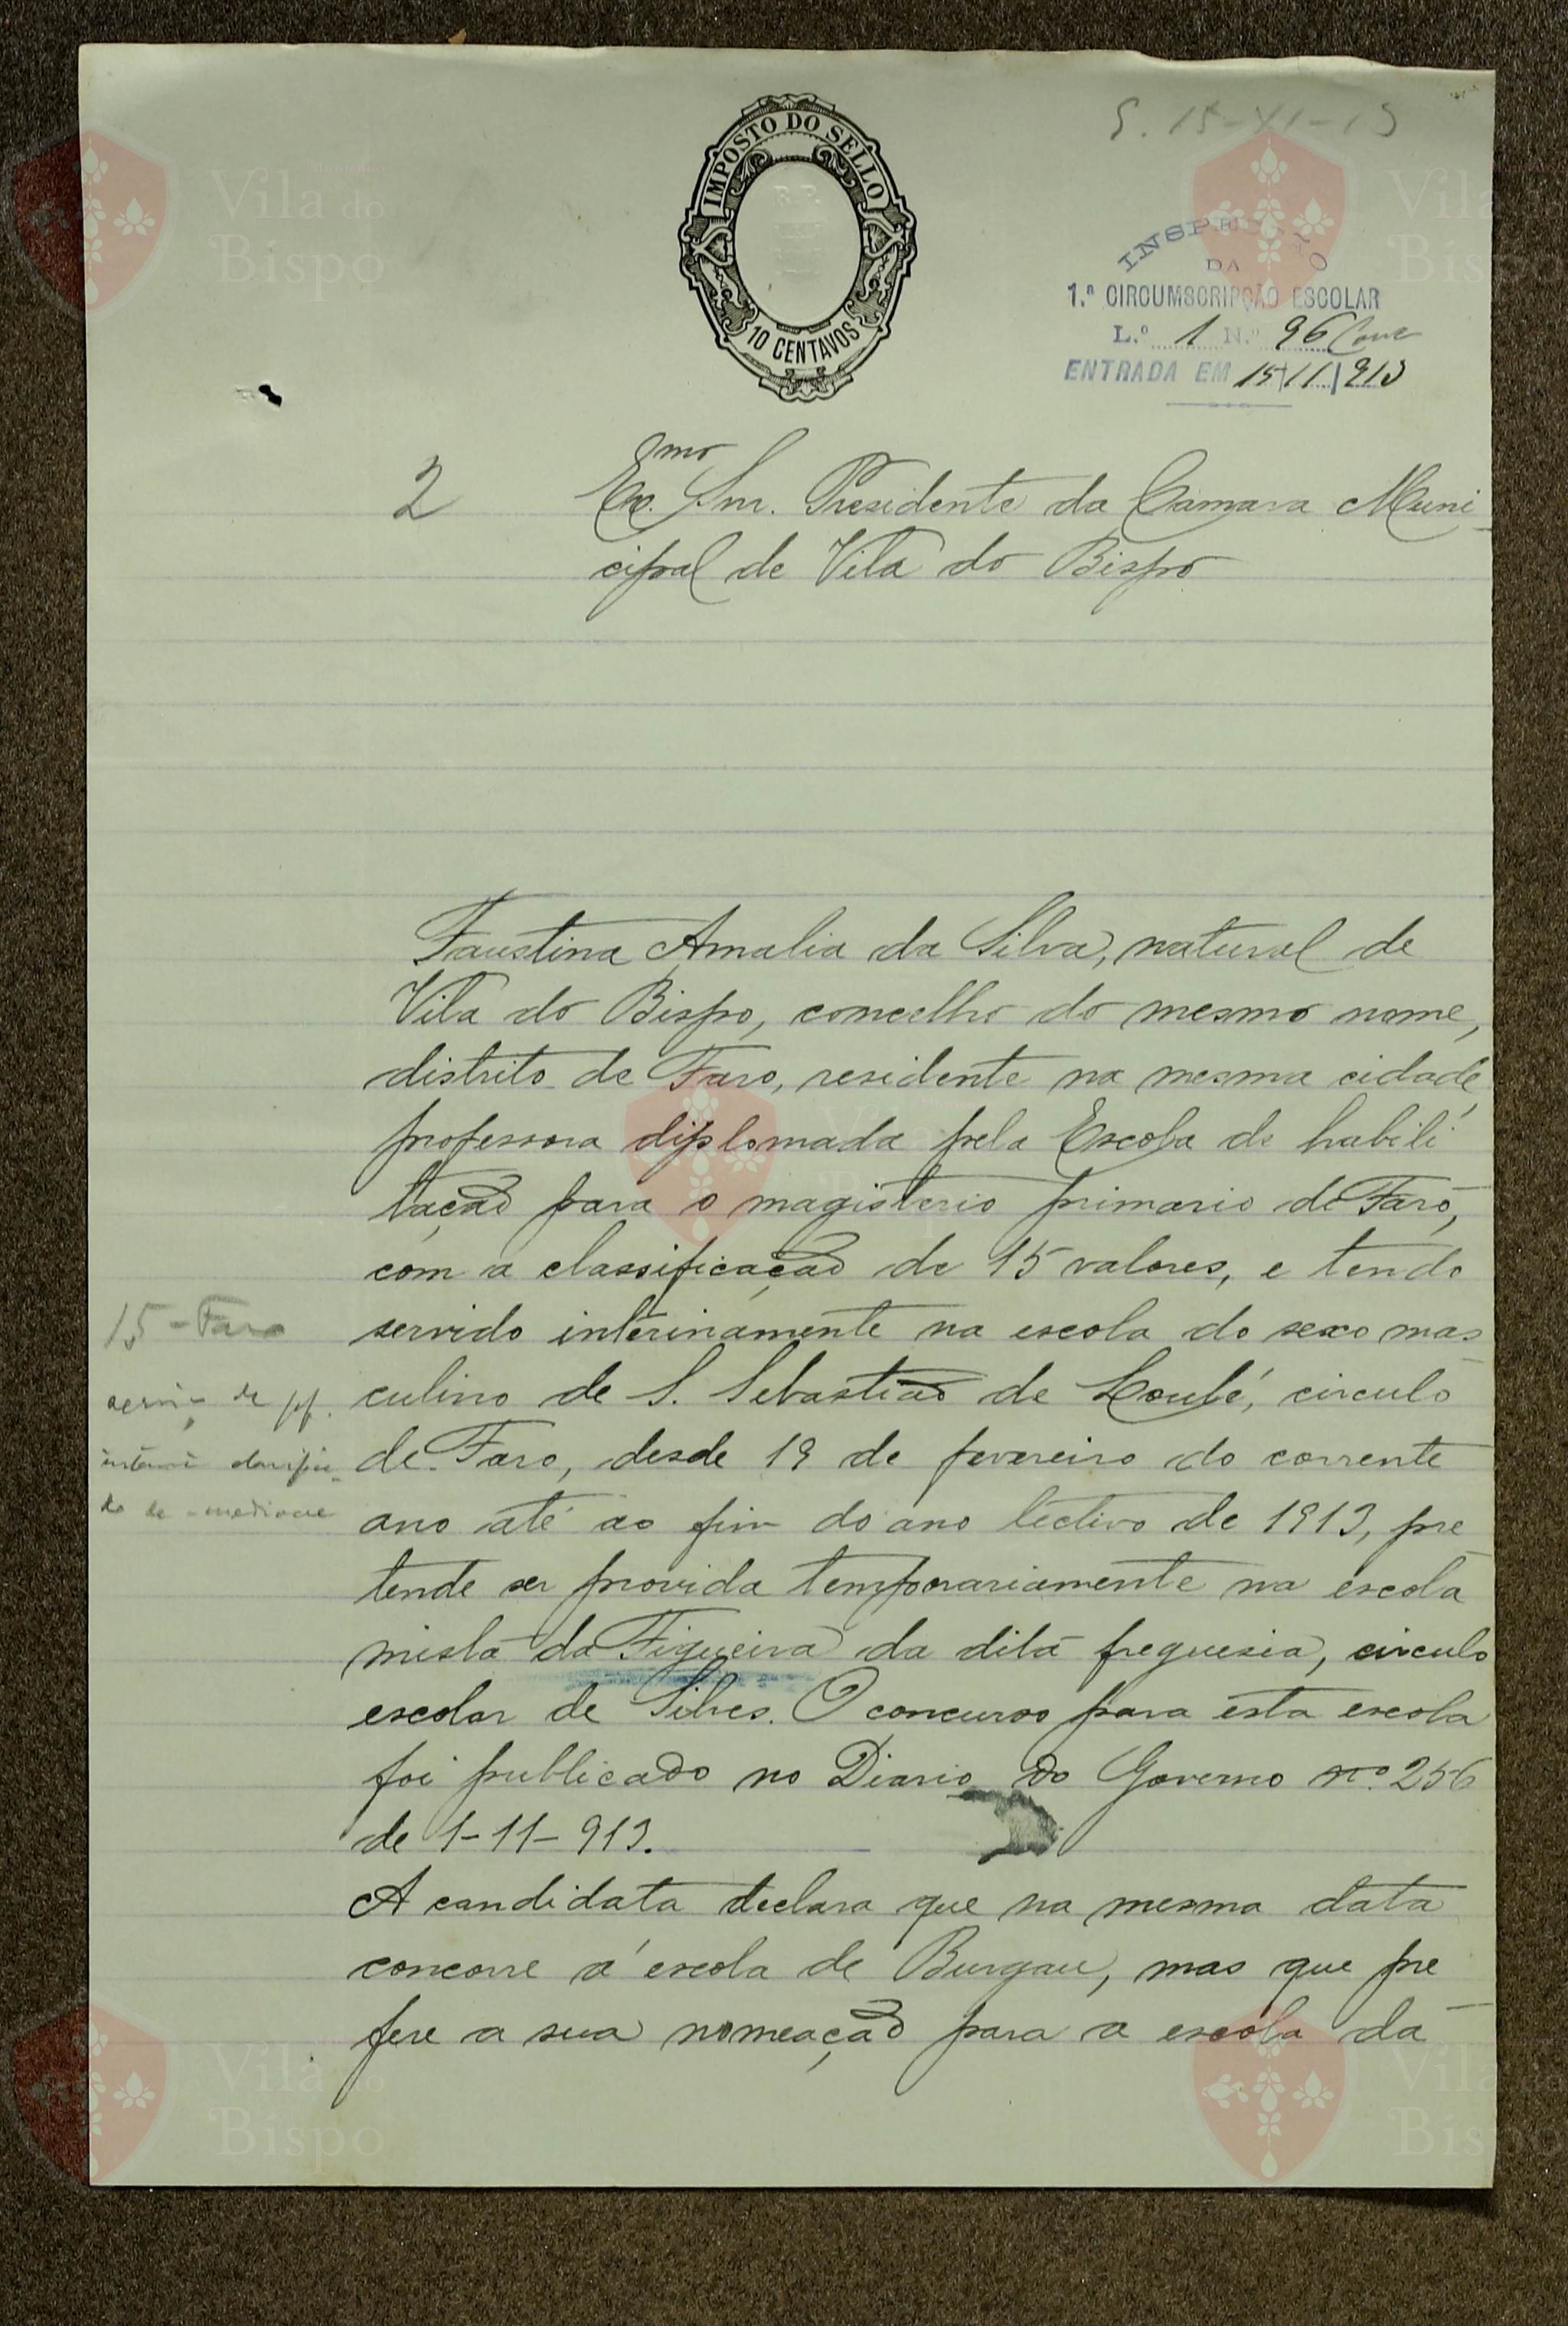 S. 15-XI-13
IMPOSTO DO SELLO
10 CENTAVOS
INSPE O
DA
1.ª CIRCUMSCRIPÇÃO ESCOLAR
L.º 1 N.º 96
ENTRADA EM 15/11/913
2
Exmo. Snr. Presidente da Camara Muni-
cipal de Vila do Bispo
Faustina Amalia da Silva, natural de
Vila do Bispo, concelho do mesmo nome,
distrito de Faro, residente na mesma cidade,
professora diplomada pela Escola de habili
tação para o magisterio primario de Faro,
com a classificação de 15 valores, e tendo
servido interinamente na escola do sexo mas
culino de S. Sebastião de Loulé, circulo
de Faro, desde 19 de fevereiro do corrente
ano até ao fim do ano lectivo de 1913, pre
tende ser provida temporariamente na escola
mista da Figueira da dita freguesia, circulo
escolar de Silves. O concurso para esta escola
foi publicado no Diario do Governo nº 256
de 1-11-913.
A candidata declara que na mesma data
concorre á escola de Burgau, mas que pre
fere a sua nomeação para a escola da
15-Faro
de pf.
do de mediocre
Vila do
Bispo
Vila
Bispo
Vila do
Bispo
Vila
Bispo